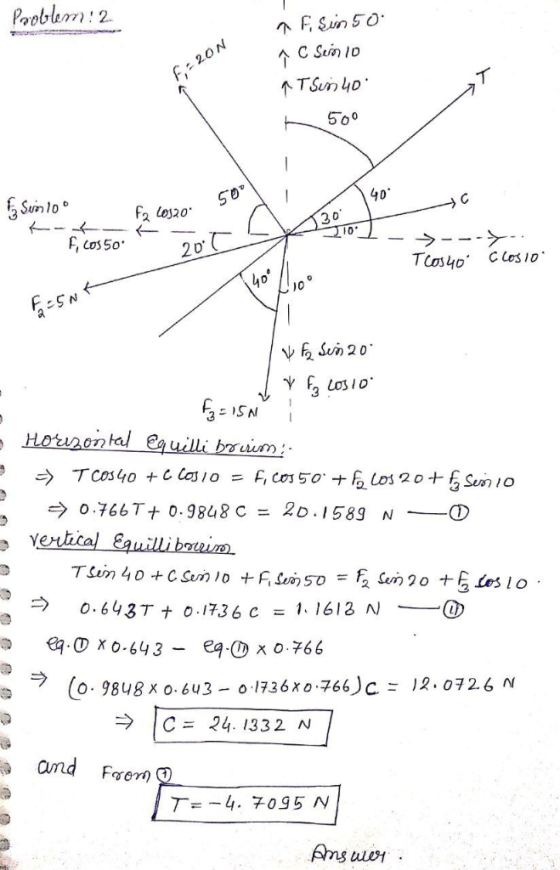 Problem: 2
F₁ Sin 50°
C Sin 10
T Sin 40°
F₁ = 20N
T
50°
50°
40°
C
30°
10°
F₃ Sin 10°
F₂ Cos20°
F₁ Cos 50°
20°
T Cos 40°
C Cos 10°
F₂ = 5 N
40°
10°
F₂ Sin 20°
F₃ Cos 10°
F₃ = 15N
Horizontal Equillibrium:-
⇒ T Cos 40 + C Cos 10 = F₁ Cos 50° + F₂ Cos 20 + F₃ Sin 10
⇒ 0.766T + 0.9848 C = 20.1589 N —— ①
Vertical Equillibrium
T Sin 40 + C Sin 10 + F₁ Sin 50 = F₂ Sin 20 + F₃ Cos 10.
⇒ 0.643T + 0.1736 C = 1.1613 N —— ②
eq. ① × 0.643 – eq. ② × 0.766
⇒ (0.9848 × 0.643 – 0.1736 × 0.766) C = 12.0726 N
⇒ C = 24.1332 N
and From ①
T = -4.7095 N
Answer.